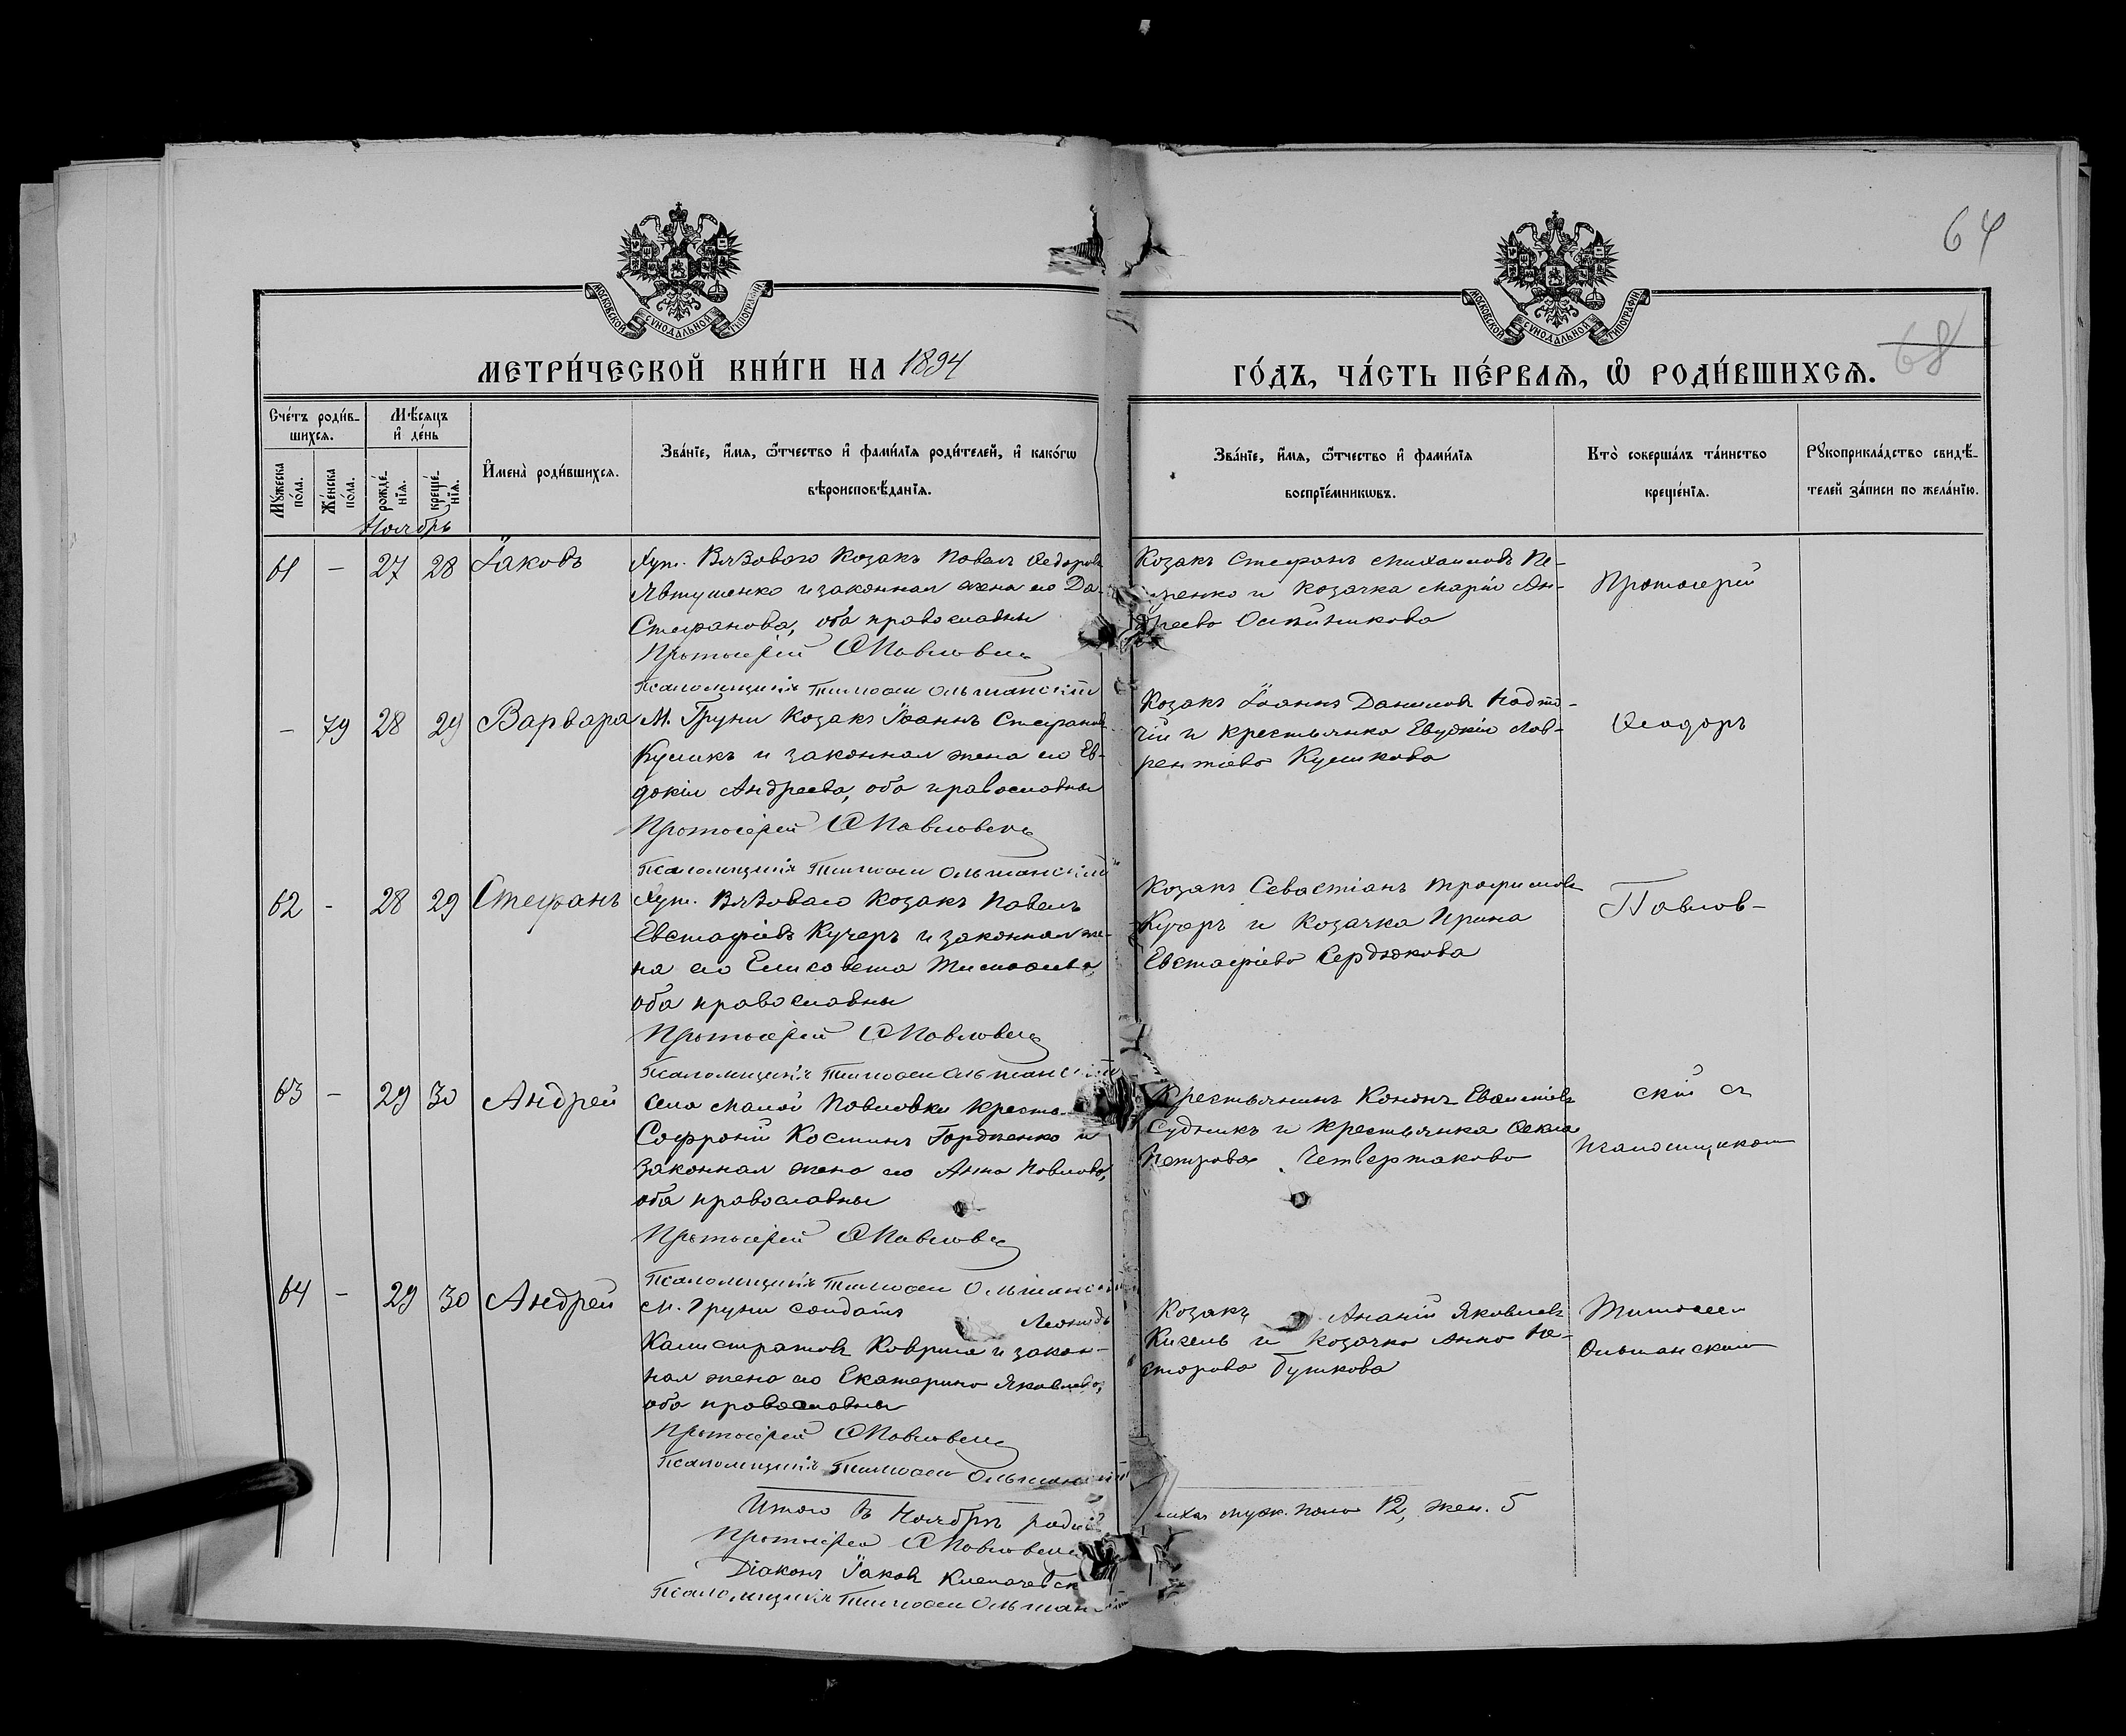 64
68
МОСКОВСКОЙ СѴНОДАЛЬНОЙ ТИПОГРАФІИ
МОСКОВСКОЙ СѴНОДАЛЬНОЙ ТИПОГРАФІИ
МЕТРИ́ЧЕСКОЙ КНИ́ГИ НА 1894
ГО́ДЪ, ЧА́СТЬ ПЕ́РВАѦ, Ѡ РОДИ́ВШИХСѦ.
Сче́тъ роди́в-
шихсѧ.
Мꙋжеска по́ла.
Же́нска по́ла.
Мѣ́сѧцъ
и҆ де́нь
рожде́-
нїѧ.
креще́-
нїѧ.
И҆мена̀ роди́вшихсѧ.
Зва́нїе, и҆́мѧ, ѻ҆́тчество и҆ фами́лїѧ роди́телей, и҆ како́гѡ
вѣроисповѣ́данїѧ.
Зва́нїе, и҆́мѧ, ѻ҆́тчество и҆ фами́лїѧ
воспрїе́мникѡвъ.
Кто̀ соверша́лъ та́инство
креще́нїѧ.
Рꙋкоприкла́дство свидѣ́-
телей за́писи по жела́нїю.
Ноябрь
61 - 27 28 Іаковъ
Хут. Вязоваго козакъ Павелъ Ѳедоровъ
Явтушенко и законная жена его Да-
Стефанова, оба православны
Протоіерей Ѳ Павловскі
Псаломщикъ Тимоѳей Ольшанскій
Козакъ Стефанъ Михаиловъ Пе-
ненко и козачка Марія Ан-
дреева
Протоіерей
- 79 28 29 Варвара
М. Груни козакъ Іоаннъ Стефановъ
Куликъ и законная жена его Ев-
докія Андреева, оба православны
Протоіерей Ѳ Павловскі
Псаломщикъ Тимоѳей Ольшанскій
Козакъ Іоаннъ Даниловъ Надто-
чій и крестьянка Евдокія Лав-
рентіева Куликова
Ѳеодоръ
62 - 28 29 Стефанъ
Хут. Вязоваго козакъ Павелъ
Евстафіевъ Кучеръ и законная же-
на его Елисавета Тимоѳеева,
оба православны
Протоіерей Ѳ Павловскі
Псаломщикъ Тимоѳей Ольшанскій
Козакъ Севастіанъ Трофимовъ
Кучеръ и козачка Ирина
Евстафіева Сердюкова
Павлов-
63 - 29 30 Андрей
Села Малой Павловки крестья
Софроній Костинъ Гордіенко и
законная жена его Анна Павлова,
оба православны
Протоіерей Ѳ Павловскі
Псаломщикъ Тимоѳей Ольшанскій
Крестьянинъ Кононъ
Судникъ и крестьянка Ѳекла
Петрова Четвертакова
скій съ
псаломщикомъ
64 - 29 30 Андрей
М. Груни солдатъ Леонидъ
Калистратовъ Коврига и закон-
ная жена его Екатерина Яковлева,
оба православны
Протоіерей Ѳ Павловскі
Псаломщикъ Тимоѳей Ольшанскій
Козакъ Ананій Яковлевъ
Кигель и козачка Анна Не-
сторова Буткова
Тимоѳеемъ
Ольшанскимъ
Итого въ Ноябрѣ родив
шихся муж. пола 12, жен. 5
Протоіерей Ѳ Павловскі
Діаконъ Іаковъ Клепачевск
Псаломщикъ Тимоѳей Ольшанскій